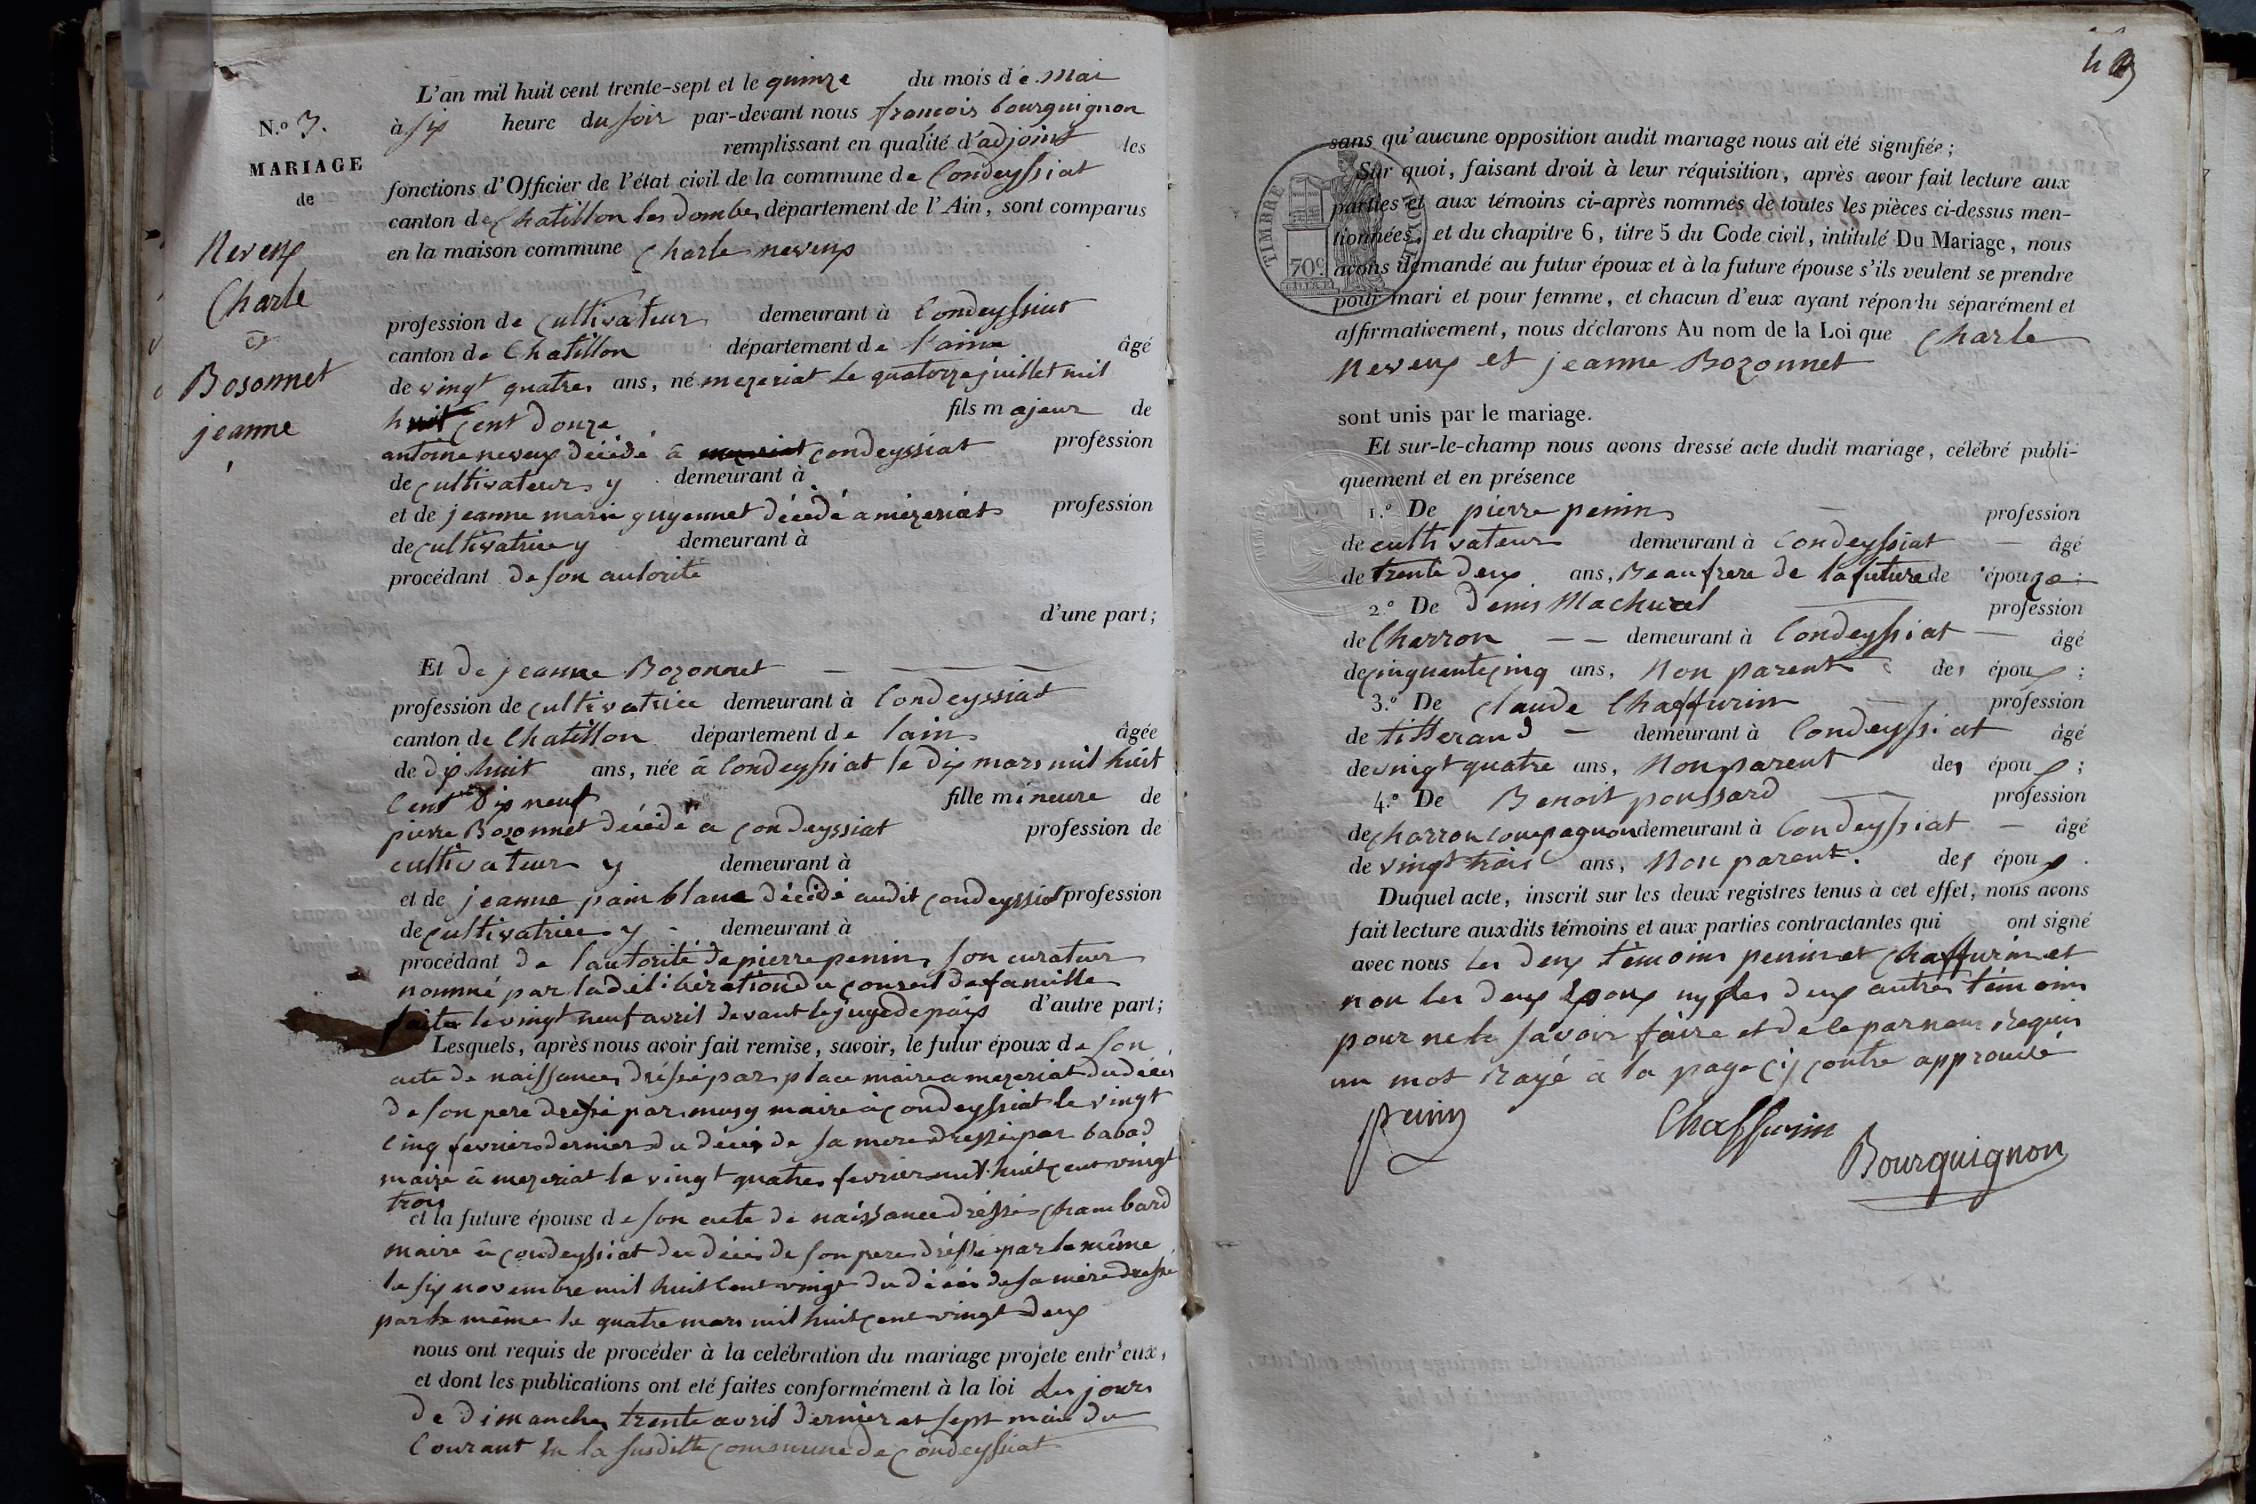 L'an mil huit cent trente-sept et le quinze du mois de mai
à six heure du soir par-devant nous françois bourguignon
remplissant en qualité d'adjoint les
fonctions d'Officier de l'état civil de la commune de Condeyssiat
canton de Chatillon les dombes département de l'Ain, sont comparus
en la maison commune Charle neveux
N.o 7.
MARIAGE
de
Neveux
Charle
et
Bosonnet
jeanne
profession de cultivateur demeurant à Condeyssiat
canton de Chatillon département de l'ain âgé
de vingt quatre ans, né mezeriat le quatorze juillet mil
huit cent douze fils majeur de
antoine neveux décédé à condeyssiat profession
de cultivateur y demeurant à
et de jeanne marie guyennet décédé a mezeriat profession
de cultivatrice y demeurant à
procédant de son autorité
d'une part;
Et de jeanne Bozonnet
profession de cultivatrice demeurant à Condeyssiat
canton de Chatillon département de lain âgée
de dix huit ans, née à Condeyssiat le dix mars mil huit
cent dix neuf fille mineure de
pierre Bozonnet décédé a condeyssiat profession de
cultivateur y demeurant à
et de jeanne pain blanc décédé audit condeyssiat profession
de cultivatrice y demeurant à
procédant de l'autorité de pierre penin son curateur
nommé par la délibération du conseil de famille
faite le vingt neuf avril devant le juge de paix d'autre part;
Lesquels, après nous avoir fait remise, savoir, le futur époux de son
acte de naissance dressé par place maire a mezeriat du décès
de son pere dressé par musy maire à condeyssiat le vingt
cinq fevrier dernier du décès de sa mere dressé par babad
maire à mezeriat le vingt quatre fevrier mil huit cent vingt
trois
et la future épouse de son acte de naissance dressé chambard
maire à condeyssiat du décès de son pere dressé par le même
le six novembre mil huit cent vingt du décès de sa mère dressé
par le même le quatre mars mil huit cent vingt deux
nous ont requis de procéder à la celébration du mariage projeté entr'eux,
et dont les publications ont eté faites conformément à la loi les jours
de dimanche trente avril dernier et sept mai du
Courant en la susditte commune de condeyssiat
sans qu'aucune opposition audit mariage nous ait été signifiée;
Sur quoi, faisant droit à leur réquisition, après avoir fait lecture aux
parties et aux témoins ci-après nommés de toutes les pièces ci-dessus men-
tionnées, et du chapitre 6, titre 5 du Code civil, intitulé Du Mariage, nous
avons demandé au futur époux et à la future épouse s'ils veulent se prendre
pour mari et pour femme, et chacun d'eux ayant répondu séparément et
affirmativement, nous déclarons Au nom de la Loi que Charle
Neveux et jeanne Bozonnet
TIMBRE ROYAL
70c
sont unis par le mariage.
Et sur-le-champ nous avons dressé acte dudit mariage, célébré publi-
quement et en présence
1.o De pierre penin profession
de cultivateur demeurant à Condeyssiat âgé
de trente deux ans, Beaufrere de la future de épouze;
2.o De denis Machural profession
de Charron demeurant à Condeyssiat âgé
de cinquante cinq ans, Non parent des époux;
3.o De claude Chaffurin profession
de titterand demeurant à Condeyssiat âgé
de vingt quatre ans, Non parent des époux;
4.o De Benoit poussard profession
de charron compagnon demeurant à Condeyssiat âgé
de vingt trois ans, Non parent. des époux.
Duquel acte, inscrit sur les deux registres tenus à cet effet, nous avons
fait lecture auxdits témoins et aux parties contractantes qui ont signé
avec nous les deux témoins penin et chaffurin et
non les deux Epoux ny les deux autres témoins
pour ne le savoir faire et de le par nous requis
un mot rayé à la page ci contre approuvé
penin
Chaffurin
Bourguignon